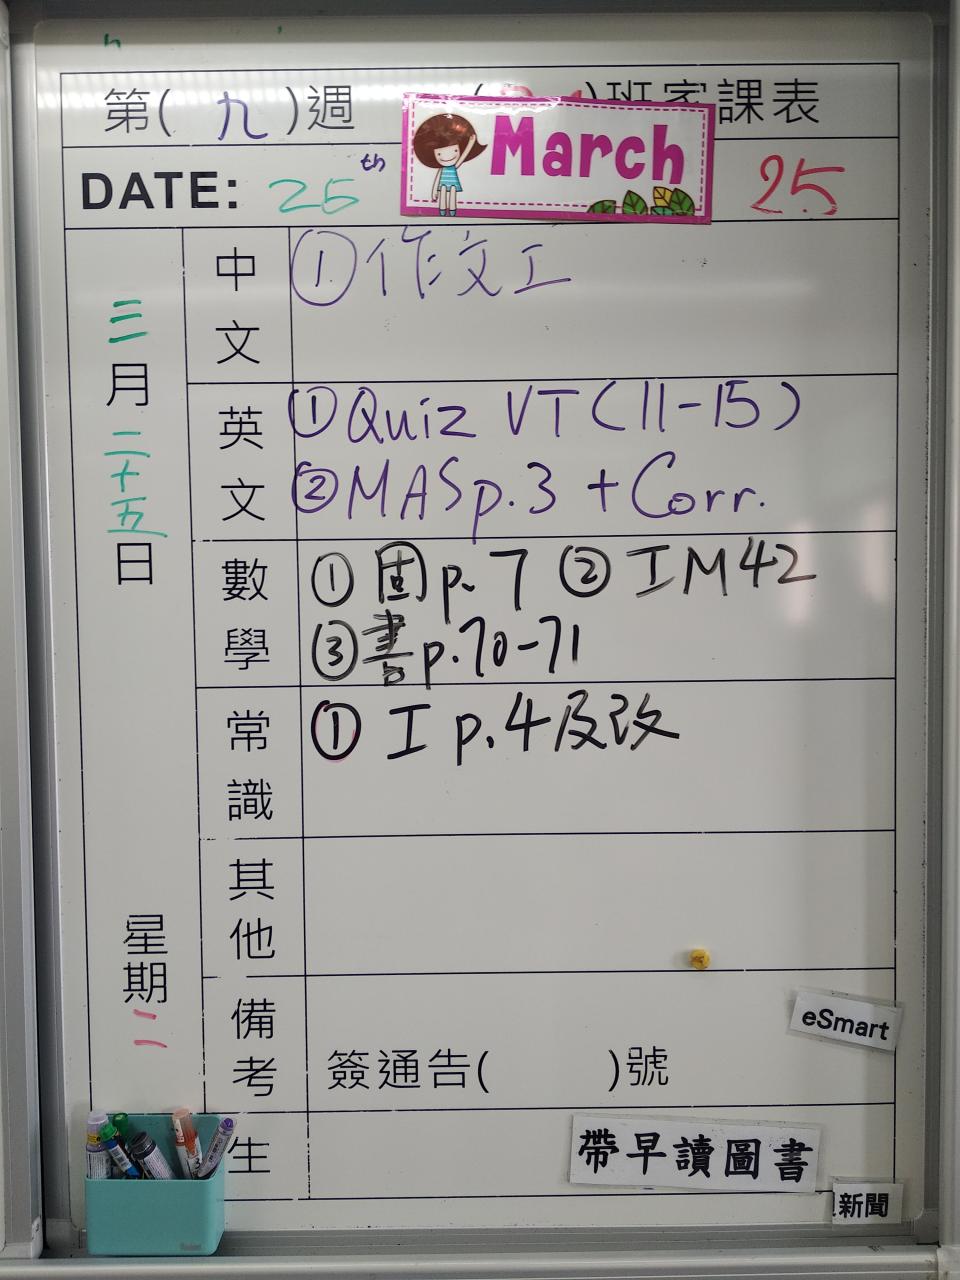 第(九)週
班家課表
DATE: 25th March 25
三月二十五日
星期二
中文
①作文工
英文
①Quiz VT(11-15)
②MAS p.3 + Corr.
數學
①固p.7 ②工M42
③書p.70-71
常識
①工p.4及改
其他
備考
簽通告( )號
eSmart
生
帶早讀圖書
新聞